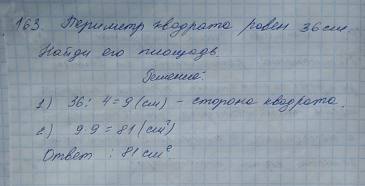 163. Периметр квадрата равен 36 см.
Найди его площадь.
Решение:
1) 36 : 4 = 9 (см) - сторона квадрата.
2) 9·9 = 81 (см²)
Ответ : 81 см²